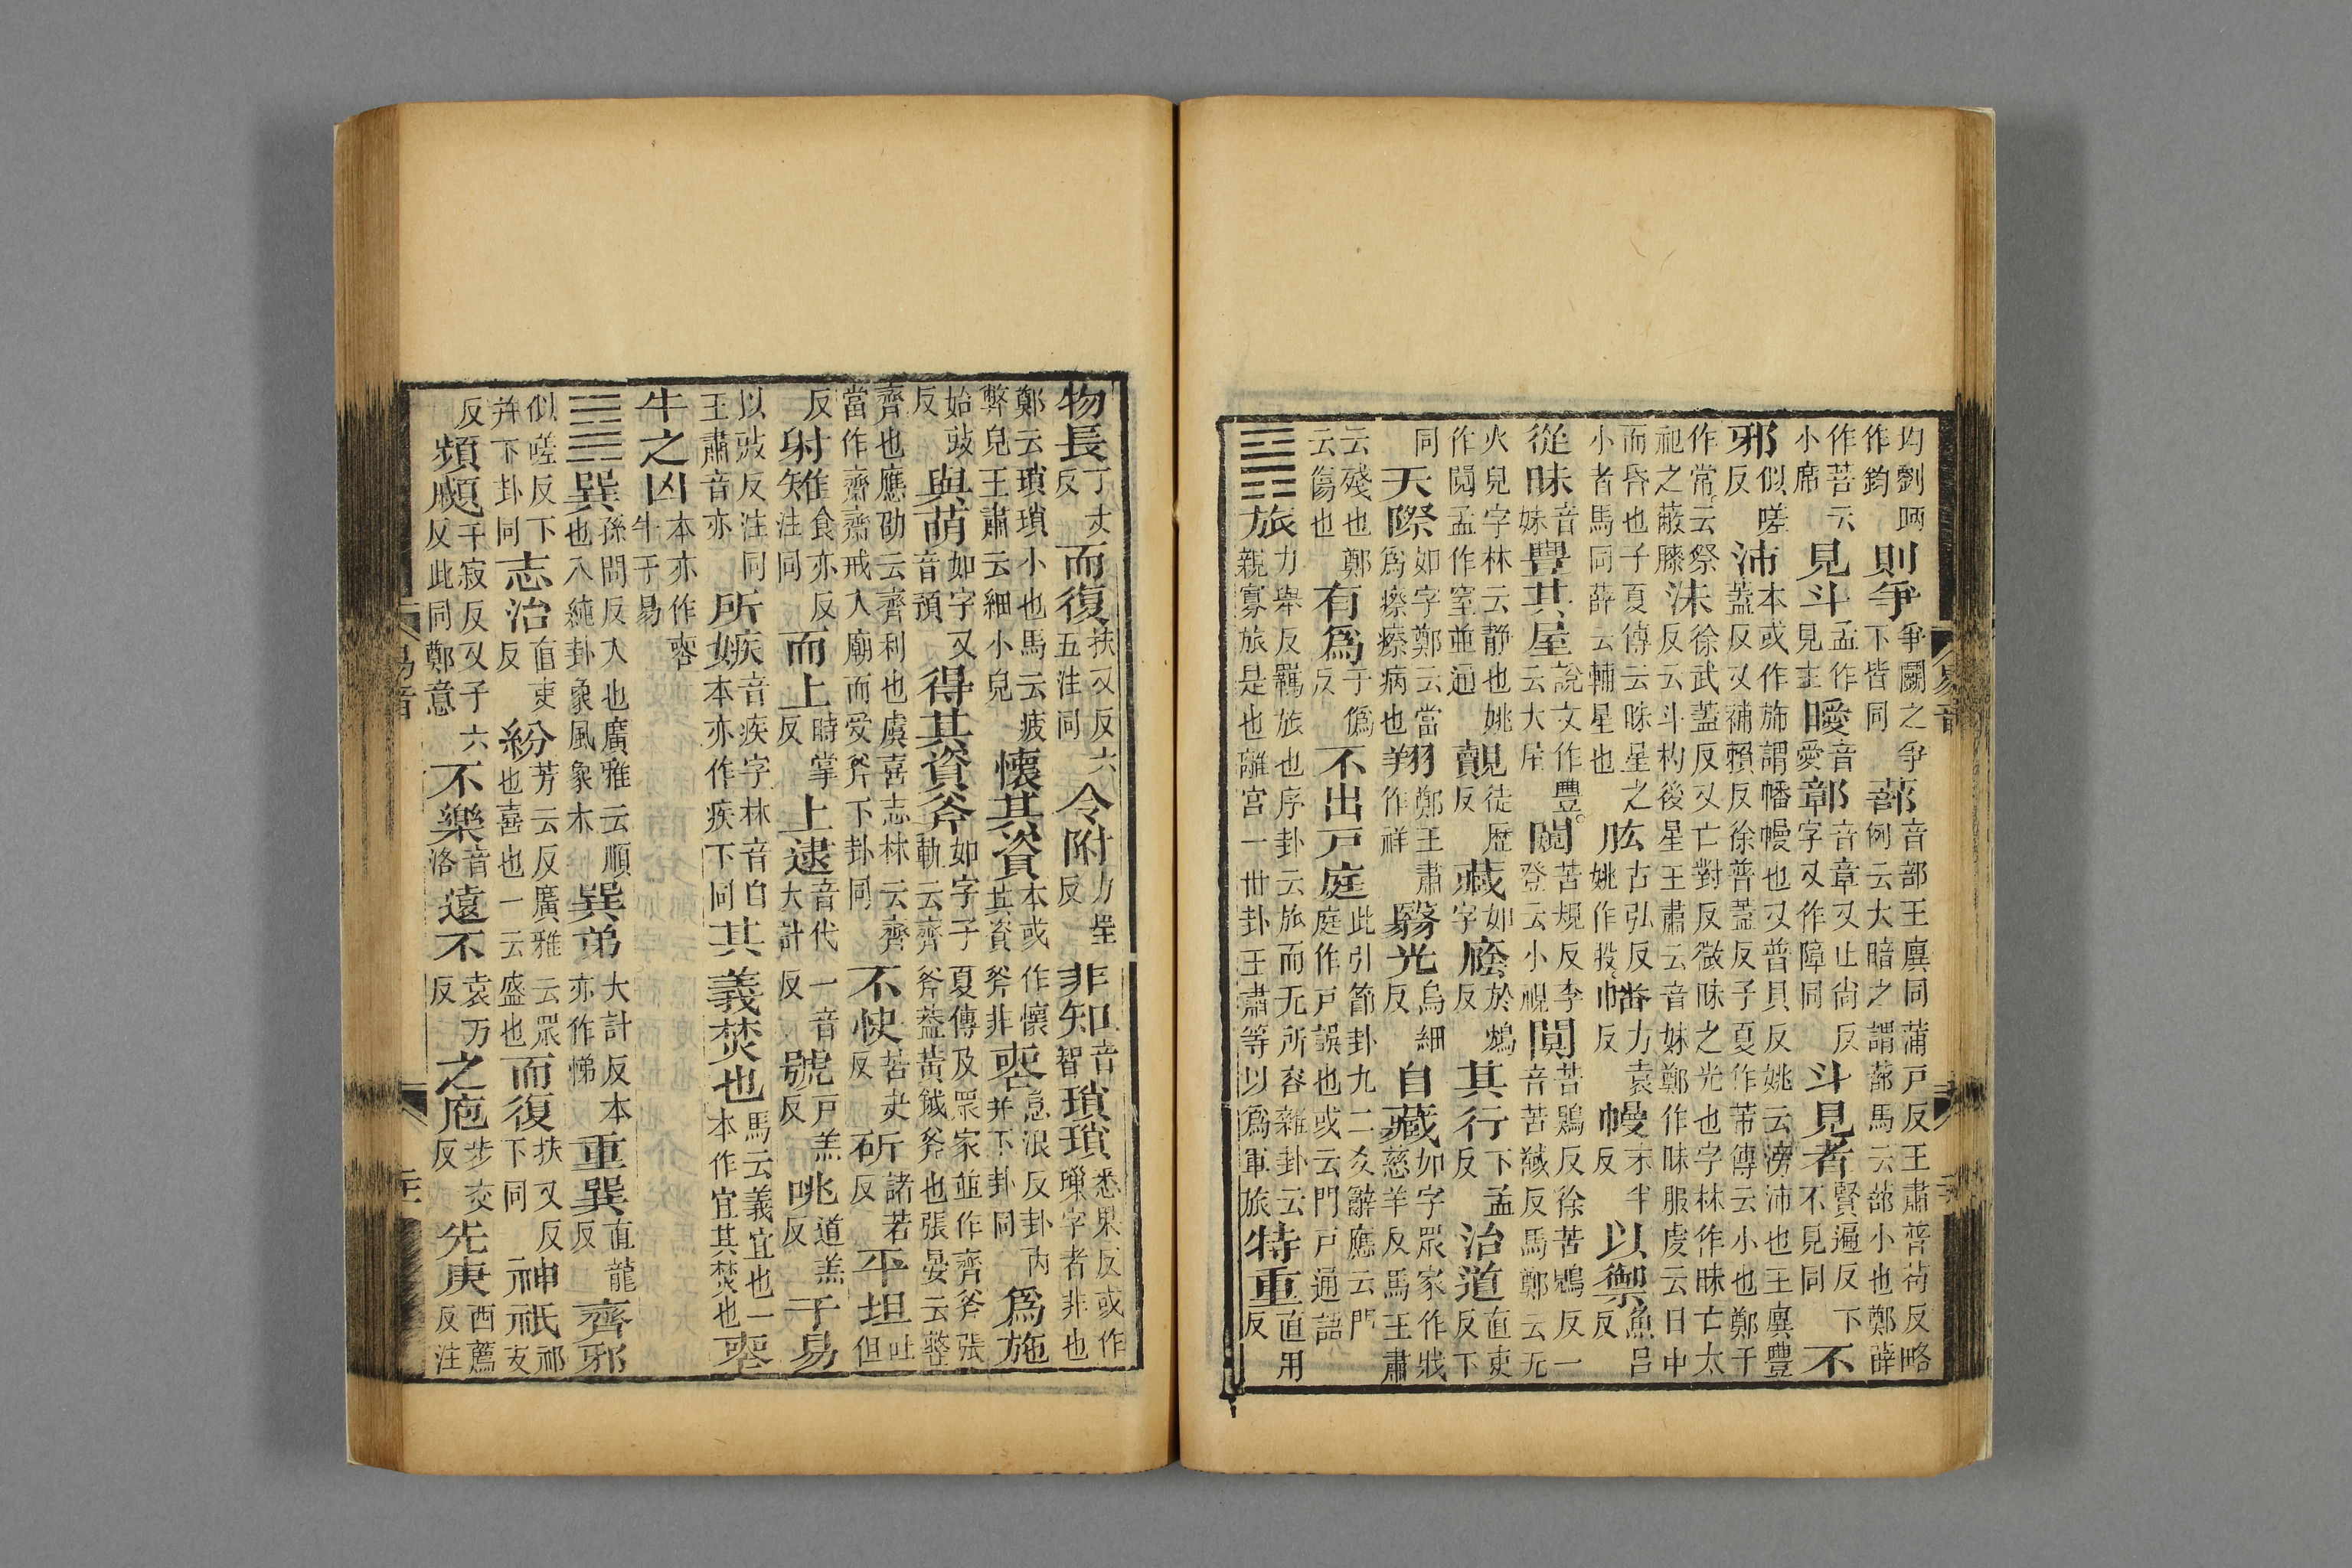 均劉昞作鈞則爭爭鬬之爭下皆同蔀音部王廙同蒲戸反王肅普茍反略例云大暗之謂蔀馬云蔀小也鄭薛
作菩云小席見斗孟作見主曖音愛鄣音章又止尚反字又作障同斗見者賢遍反下不見同不
邪似嗟反沛本或作旆謂幡幔也又普貝反姚云滂沛也王廙豐蓋反又補賴反徐普蓋反子夏作芾傳云小也鄭干
作常云祭祀之蔽膝沬徐武蓋反又亡對反微昧之光也字林作昧亡太反云斗杓後星王肅云音妹鄭作昧服虔云日中
而昏也子夏傳云昧星之小者馬同薛云輔星也肱古弘反姚作股旛力袁反幔末半反以禦魚呂反
從昧音妹豐其屋說文作豐云大屋闚苦規反李登云小視闃苦鶪反徐苦鶪反一音苦䦧反馬鄭云无
人皃字林云静也姚作閱孟作窒並通覿徒歴反藏如字廕於鴆反其行下孟反治道直吏反下
同天際如字鄭云當爲瘵瘵病也翔鄭王肅作祥翳光烏細反自藏如字眾家作戕慈羊反馬王肅
云殘也鄭云傷也有爲于僞反不出戸庭此引節卦九二爻辭應云門庭作戸誤也或云門戸通語
旅力舉反羈旅也序卦云旅而无所容雜卦云親寡旅是也離宮一世卦王肅等以爲軍旅特重直用反
物長丁丈反而復扶又反六五注同令附力呈反非知音智瑣瑣悉果反或作璅字者非也
鄭云瑣瑣小也馬云疲弊皃王肅云細小皃懷其資本或作懷其資斧非喪息浪反卦內并下卦同爲施
始豉反與萌如字又音預得其資斧如字子夏傳及眾家並作齊斧張軌云齊斧蓋黃鉞斧也張晏云整
齊也應劭云齊利也虞喜志林云齊當作齋齋戒入廟而受斧下卦同不快苦夬反斫諸若反平坦吐但
反射雉食亦反注同而上時掌反上逮音代一音大計反號戸羔反咷道羔反于易
以豉反注同王肅音亦所嫉音疾字林音自本亦作疾下同其義焚也馬云義宜也一本作宜其焚也喪
牛之凶本亦作喪牛于易
巽孫問反入也廣雅云順也入純卦象風象木巽弟大計反本亦作悌重巽直龍反齊邪
似嗟反下并下卦同志治直吏反紛芳云反廣雅云眾也喜也一云盛也而復扶又反下同神祇祁支
反頻顣千寂反又子六反此同鄭意不樂音洛遠不袁万反之庖步交反先庚西薦反注